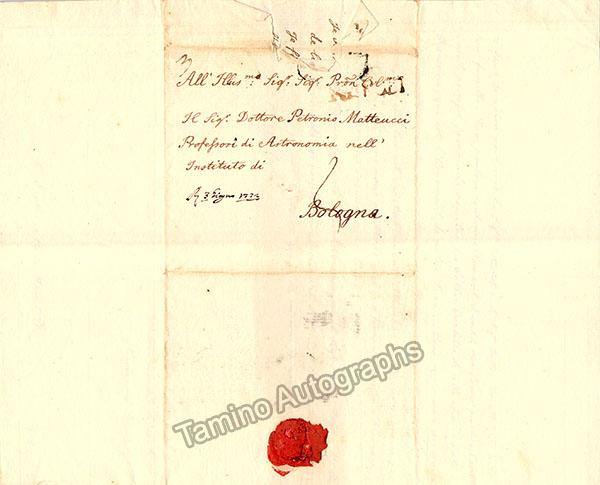 All' Illus:mo Sig:r Sig:r Pron Col:mo
Il Sig:r Dottore Petronio Matteucci
Professori di Astronomia nell'
Instituto di
Bologna.
R 3 Giugno 1773
Tamino Autographs